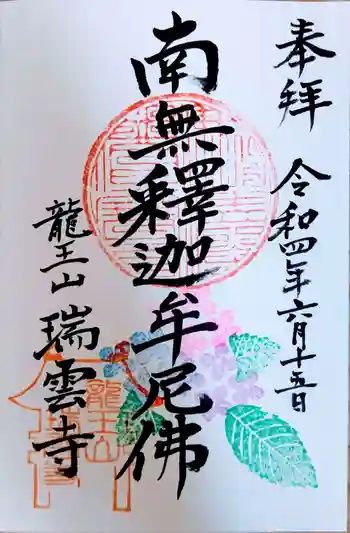 奉拝
令和四年六月十五日
南無釋迦牟尼佛
龍王山
瑞雲寺
龍王山